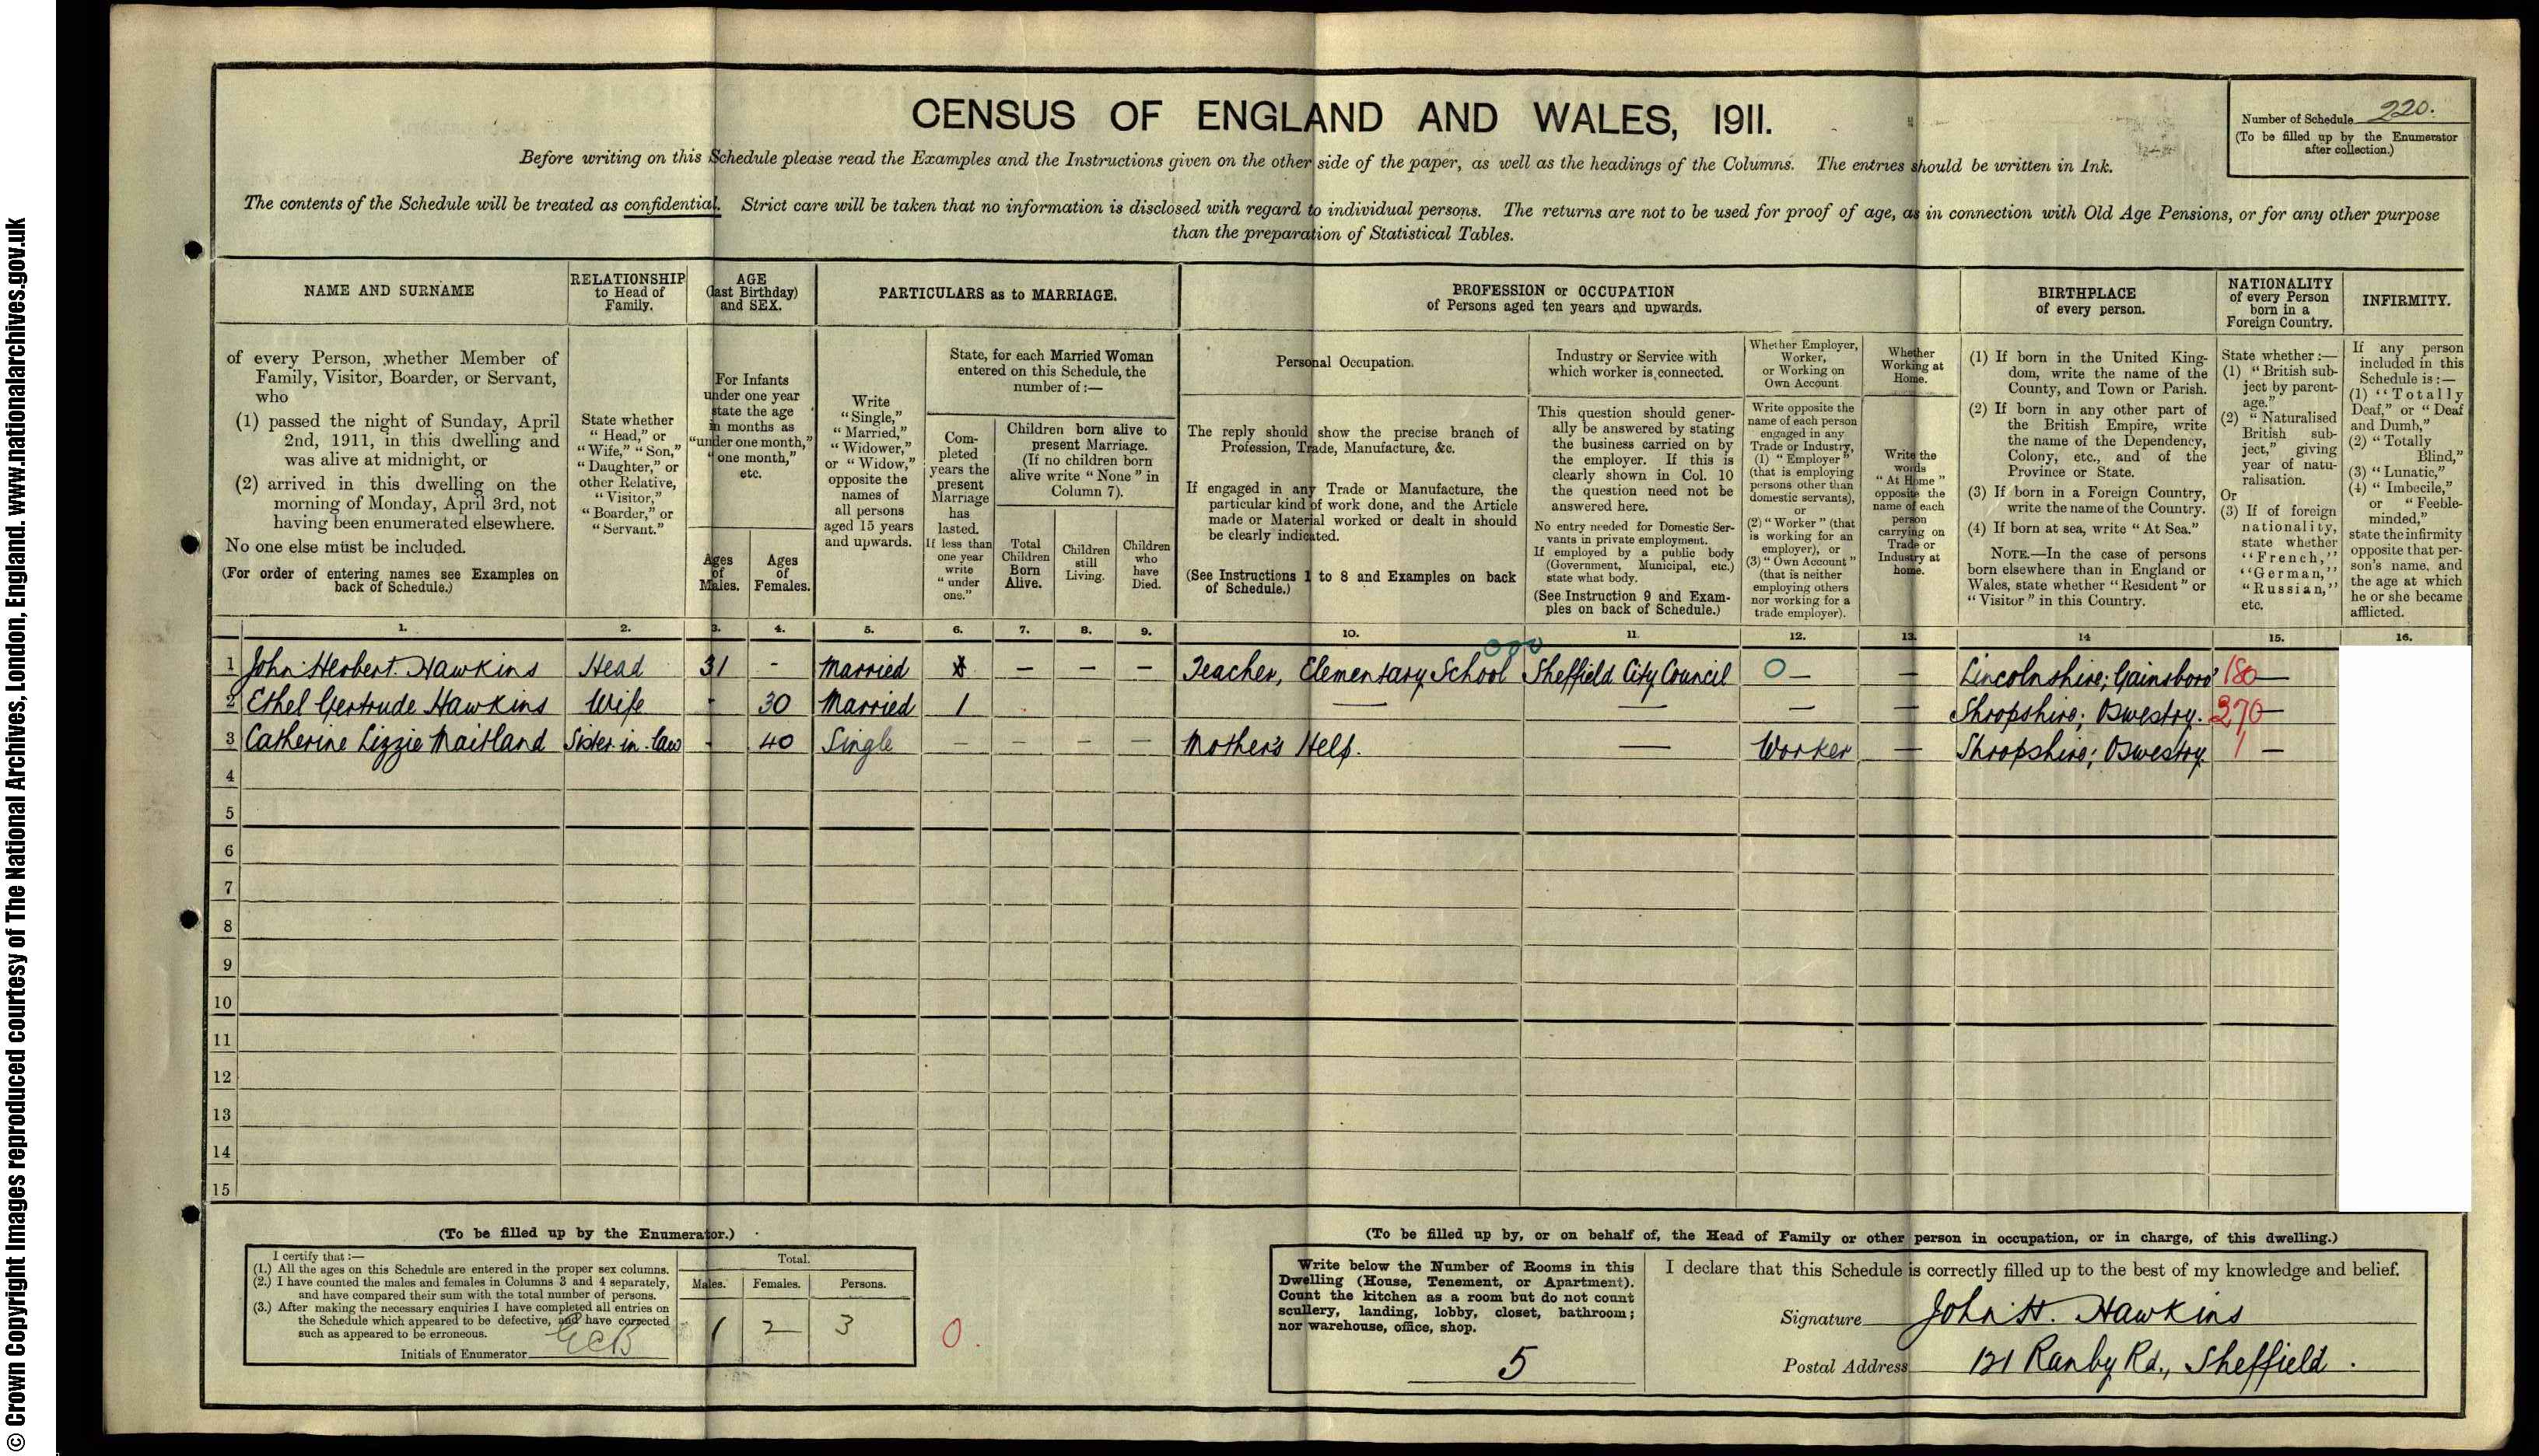 CENSUS OF ENGLAND AND WALES, 1911.
Number of Schedule 220.
(To be filled up by the Enumerator
after collection.)
Before writing on this Schedule please read the Examples and the Instructions given on the other side of the paper, as well as the headings of the Columns. The entries should be written in Ink.
The contents of the Schedule will be treated as confidential. Strict care will be taken that no information is disclosed with regard to individual persons. The returns are not to be used for proof of age, as in connection with Old Age Pensions, or for any other purpose
than the preparation of Statistical Tables.
NAME AND SURNAME
of every Person, whether Member of
Family, Visitor, Boarder, or Servant,
who
(1) passed the night of Sunday, April
2nd, 1911, in this dwelling and
was alive at midnight, or
(2) arrived in this dwelling on the
morning of Monday, April 3rd, not
having been enumerated elsewhere.
No one else must be included.
(For order of entering names see Examples on
back of Schedule.)
RELATIONSHIP
to Head of
Family.
State whether
"Head," or
"Wife," "Son,"
"Daughter," or
other Relative,
"Visitor,"
"Boarder," or
"Servant."
AGE
(last Birthday)
and SEX.
For Infants
under one year
state the age
in months as
"under one month,"
"one month,"
etc.
Ages
of
Males.
Ages
of
Females.
PARTICULARS as to MARRIAGE.
Write
"Single,"
"Married,"
"Widower,"
or "Widow,"
opposite the
names of
all persons
aged 15 years
and upwards.
State, for each Married Woman
entered on this Schedule, the
number of:—
Com-
pleted
years the
present
Marriage
has
lasted.
If less than
one year
write
"under
one."
Children born alive to
present Marriage.
(If no children born
alive write "None" in
Column 7).
Total
Children
Born
Alive.
Children
still
Living.
Children
who
have
Died.
PROFESSION or OCCUPATION
of Persons aged ten years and upwards.
Personal Occupation.
The reply should show the precise branch of
Profession, Trade, Manufacture, &c.
If engaged in any Trade or Manufacture, the
particular kind of work done, and the Article
made or Material worked or dealt in should
be clearly indicated.
(See Instructions 1 to 8 and Examples on back
of Schedule.)
Industry or Service with
which worker is connected.
This question should gener-
ally be answered by stating
the business carried on by
the employer. If this is
clearly shown in Col. 10
the question need not be
answered here.
No entry needed for Domestic Ser-
vants in private employment.
If employed by a public body
(Government, Municipal, etc.)
state what body.
(See Instruction 9 and Exam-
ples on back of Schedule.)
Whether Employer,
Worker,
or Working on
Own Account.
Write opposite the
name of each person
engaged in any
Trade or Industry,
(1) "Employer"
(that is employing
persons other than
domestic servants),
or
(2) "Worker" (that
is working for an
employer), or
(3) "Own Account"
(that is neither
employing others
nor working for a
trade employer).
Whether
Working at
Home.
Write the
words
"At Home"
opposite the
name of each
person
carrying on
Trade or
Industry at
home.
BIRTHPLACE
of every person.
(1) If born in the United King-
dom, write the name of the
County, and Town or Parish.
(2) If born in any other part of
the British Empire, write
the name of the Dependency,
Colony, etc., and of the
Province or State.
(3) If born in a Foreign Country,
write the name of the Country.
(4) If born at sea, write "At Sea."
NOTE.—In the case of persons
born elsewhere than in England or
Wales, state whether "Resident" or
"Visitor" in this Country.
NATIONALITY
of every Person
born in a
Foreign Country.
State whether:—
(1) "British sub-
ject by parent-
age."
(2) "Naturalised
British sub-
ject," giving
year of natu-
ralisation.
Or
(3) If of foreign
nationality,
state whether
"French,"
"German,"
"Russian,"
etc.
INFIRMITY.
If any person
included in this
Schedule is:—
(1) "Totally
Deaf," or "Deaf
and Dumb,"
(2) "Totally
Blind,"
(3) "Lunatic,"
(4) "Imbecile,"
or "Feeble-
minded,"
state the infirmity
opposite that per-
son's name, and
the age at which
he or she became
afflicted.
1. 2. 3. 4. 5. 6. 7. 8. 9. 10. 11. 12. 13. 14 15. 16.
000
1 John Herbert Hawkins Head 31 - Married — — — Teacher, Elementary School Sheffield City Council 0 — — Lincolnshire; Gainsboro' 180 —
2 Ethel Gertrude Hawkins Wife - 30 Married 1 — — — — Shropshire; Oswestry. 270 —
3 Catherine Lizzie Maitland Sister-in-law - 40 Single — — — — Mother's Help. — Worker — Shropshire; Oswestry. 1 —
4
5
6
7
8
9
10
11
12
13
14
15
(To be filled up by the Enumerator.)
I certify that:—
(1.) All the ages on this Schedule are entered in the proper sex columns.
(2.) I have counted the males and females in Columns 3 and 4 separately,
and have compared their sum with the total number of persons.
(3.) After making the necessary enquiries I have completed all entries on
the Schedule which appeared to be defective, and have corrected
such as appeared to be erroneous.
Initials of Enumerator
Total.
Males. Females. Persons.
1 2 3
0.
(To be filled up by, or on behalf of, the Head of Family or other person in occupation, or in charge, of this dwelling.)
Write below the Number of Rooms in this
Dwelling (House, Tenement, or Apartment).
Count the kitchen as a room but do not count
scullery, landing, lobby, closet, bathroom;
nor warehouse, office, shop.
5
I declare that this Schedule is correctly filled up to the best of my knowledge and belief.
Signature John H. Hawkins
Postal Address 121 Ranby Rd., Sheffield.
© Crown Copyright Images reproduced courtesy of The National Archives, London, England. www.nationalarchives.gov.uk